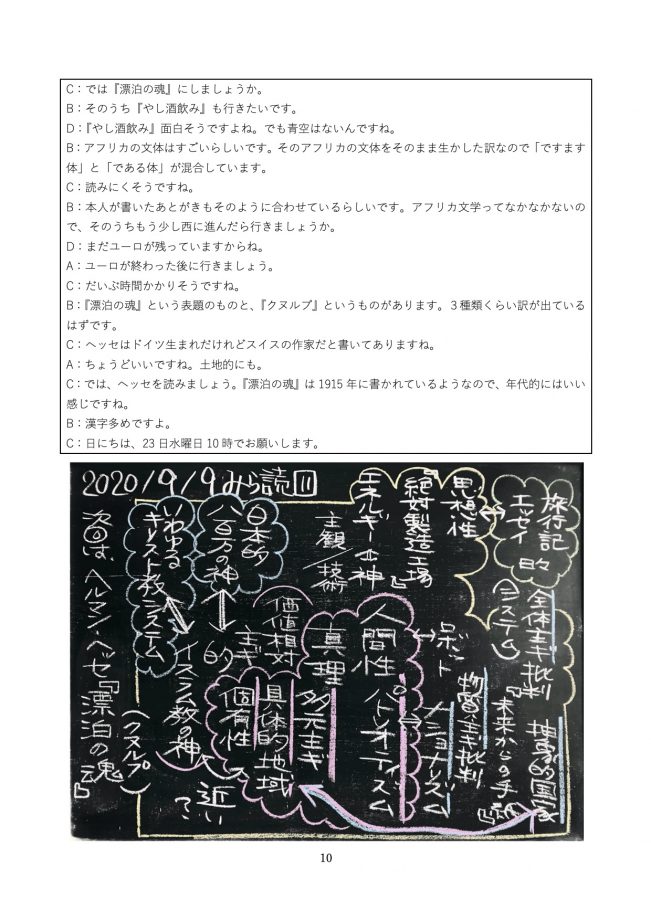 C：では『漂泊の魂』にしましょうか。
B：そのうち『やし酒飲み』も行きたいです。
D：『やし酒飲み』面白そうですよね。でも青空はないんですね。
B：アフリカの文体はすごいらしいです。そのアフリカの文体をそのまま生かした訳なので「ですます
体」と「である体」が混合しています。
C：読みにくそうですね。
B：本人が書いたあとがきもそのように合わせているらしいです。アフリカ文学ってなかなかないの
で、そのうちもう少し西に進んだら行きましょうか。
D：まだユーロが残っていますからね。
A：ユーロが終わった後に行きましょう。
C：だいぶ時間かかりそうですね。
B：『漂泊の魂』という表題のものと、『クヌルプ』というものがあります。３種類くらい訳が出ている
はずです。
C：ヘッセはドイツ生まれだけれどスイスの作家だと書いてありますね。
A：ちょうどいいですね。土地的にも。
C：では、ヘッセを読みましょう。『漂泊の魂』は 1915 年に書かれているようなので、年代的にはいい
感じですね。
B：漢字多めですよ。
C：日にちは、23 日水曜日 10 時でお願いします。
2020/9/9 みら読
旅行記
エッセイ
的
思想性
『絶対製造工場』
エネルギー
神
主観/技術
日本的
八百万の神
いわゆる
キリスト教システム
全体主ギ批判
(システム)
抽象的国家
『未来からの手紙』
物質主ギ批判
ナショナリズム
ロボット
人間性
パトレオティズム
真理
多元主ギ
価値相対
主ギ
的
具体的地域
個有性
イスラム教の神
近い?
次回は、ヘルマン・ヘッセ『漂泊の魂』
(クヌルプ)
10